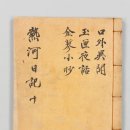 口外異聞
玉匣夜話
金蓼小抄
熱河日記 十